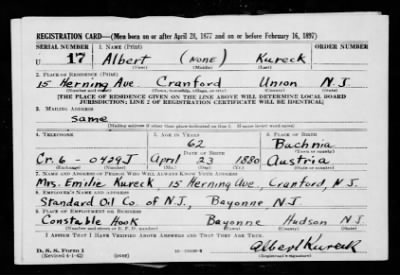 REGISTRATION CARD—(Men born on or after April 28, 1877 and on or before February 16, 1897)
SERIAL NUMBER 1. NAME (Print) ORDER NUMBER
U 17 Albert (NONE) Kureck
(First) (Middle) (Last)
2. PLACE OF RESIDENCE (Print)
15 Herning Ave Cranford Union N.J.
(Number and street) (Town, township, village, or city) (County) (State)
[THE PLACE OF RESIDENCE GIVEN ON THE LINE ABOVE WILL DETERMINE LOCAL BOARD
JURISDICTION; LINE 2 OF REGISTRATION CERTIFICATE WILL BE IDENTICAL]
3. MAILING ADDRESS
Same
[Mailing address if other than place indicated on line 2. If same insert word same]
4. TELEPHONE 5. AGE IN YEARS 6. PLACE OF BIRTH
62 Buchnia
DATE OF BIRTH (Town or county)
Cr. 6 - 0429J April 23 1880 Austria
(Exchange) (Number) (Mo.) (Day) (Yr.) (State or country)
7. NAME AND ADDRESS OF PERSON WHO WILL ALWAYS KNOW YOUR ADDRESS
Mrs. Emilie Kureck, 15 Herning Ave, Cranford, N.J.
8. EMPLOYER'S NAME AND ADDRESS
Standard Oil Co. of N.J., Bayonne N.J.
9. PLACE OF EMPLOYMENT OR BUSINESS
Constable Hook Bayonne Hudson N.J.
(Number and street or R. F. D. number) (Town) (County) (State)
I AFFIRM THAT I HAVE VERIFIED ABOVE ANSWERS AND THAT THEY ARE TRUE.
D. S. S. Form 1 Albert Kureck
(Revised 4-1-42) (over) (Registrant's signature)